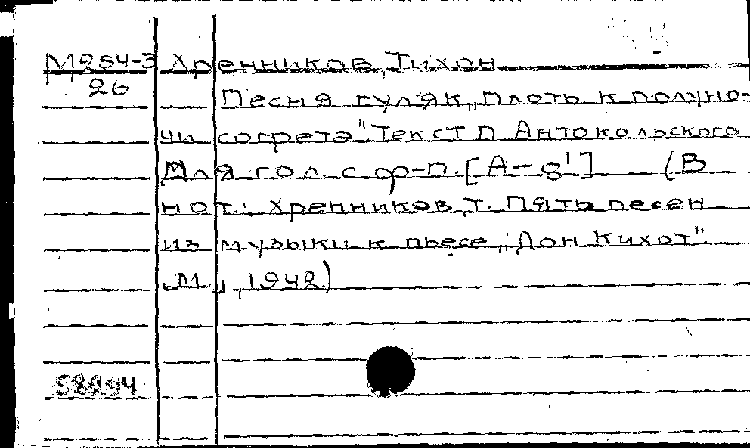 М254-3 Хренников, Тихон
26
Песня гуляк „Плоть к полуно-
чи согрета" Текст П. Антокольского
Для гол. с ф-п. [А-g¹] (В
нот.: Хренников, Т. Пять песен
из музыки к пьесе „Дон Кихот"
.М., 1942)
58894